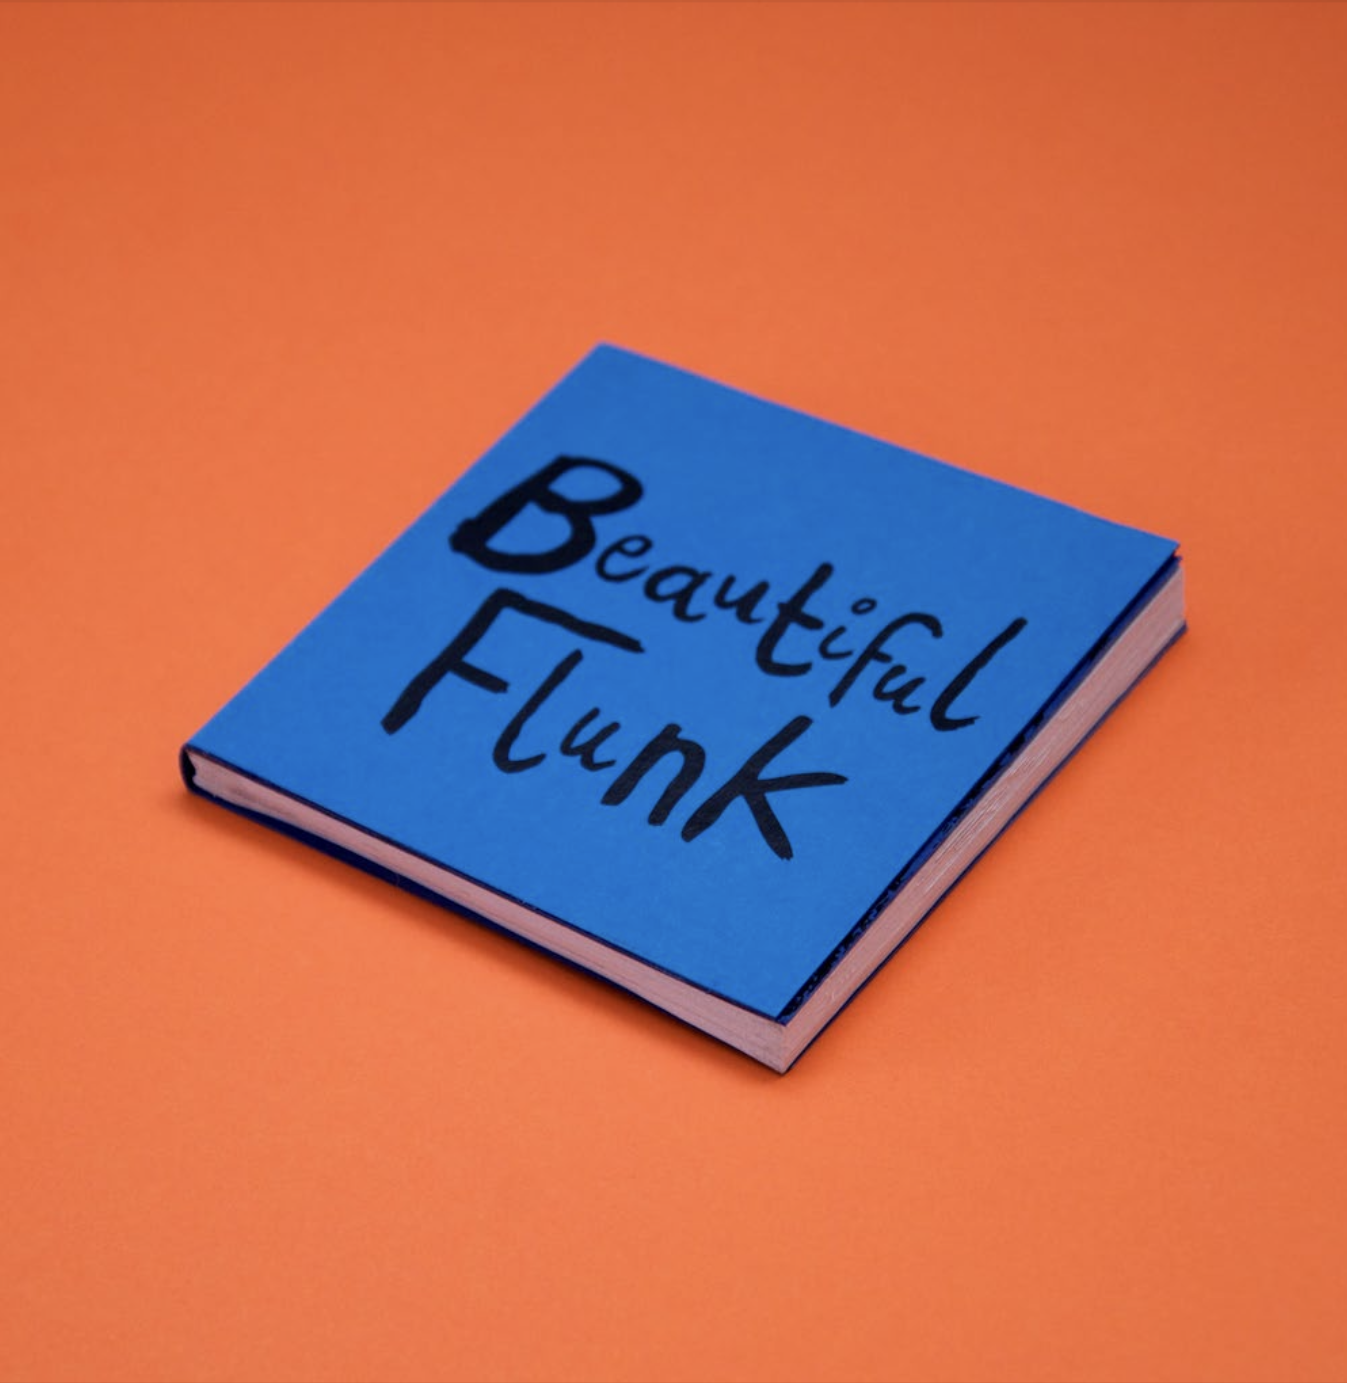 Beautiful
Flunk